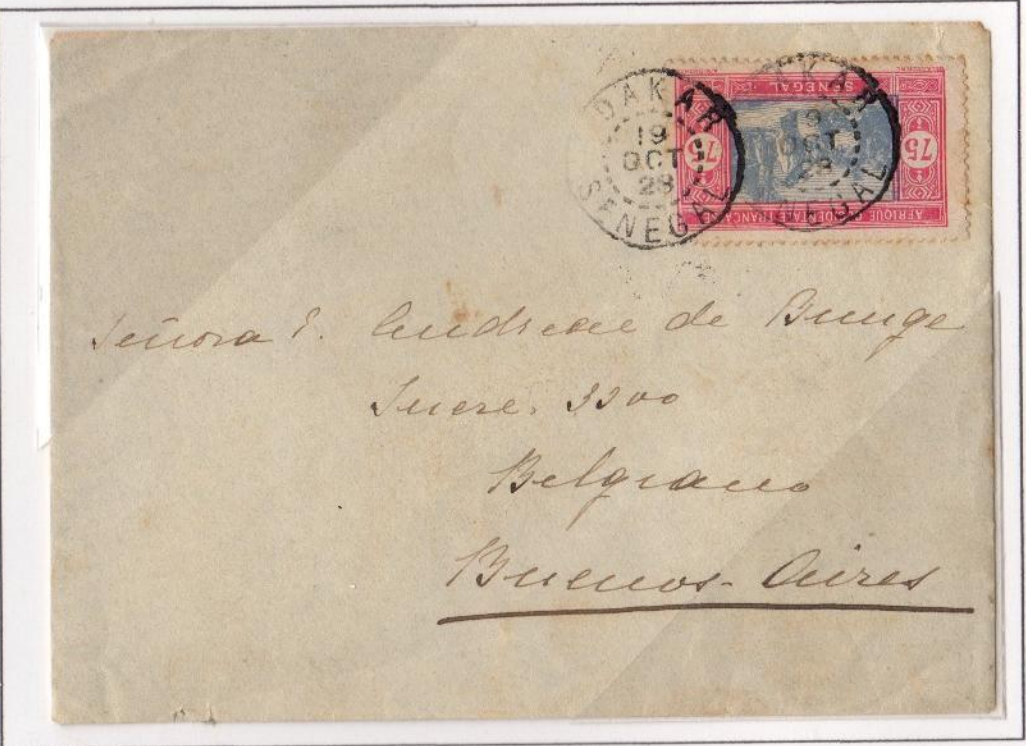 DAKAR
19
OCT
28
SENEGAL
DAKAR
19
OCT
28
SENEGAL
SENEGAL
75
75
AFRIQUE OCCIDENTALE FRANÇAISE
Señora E. Andreae de Bunge
Sucre. 3300
Belgrano
Buenos-Aires